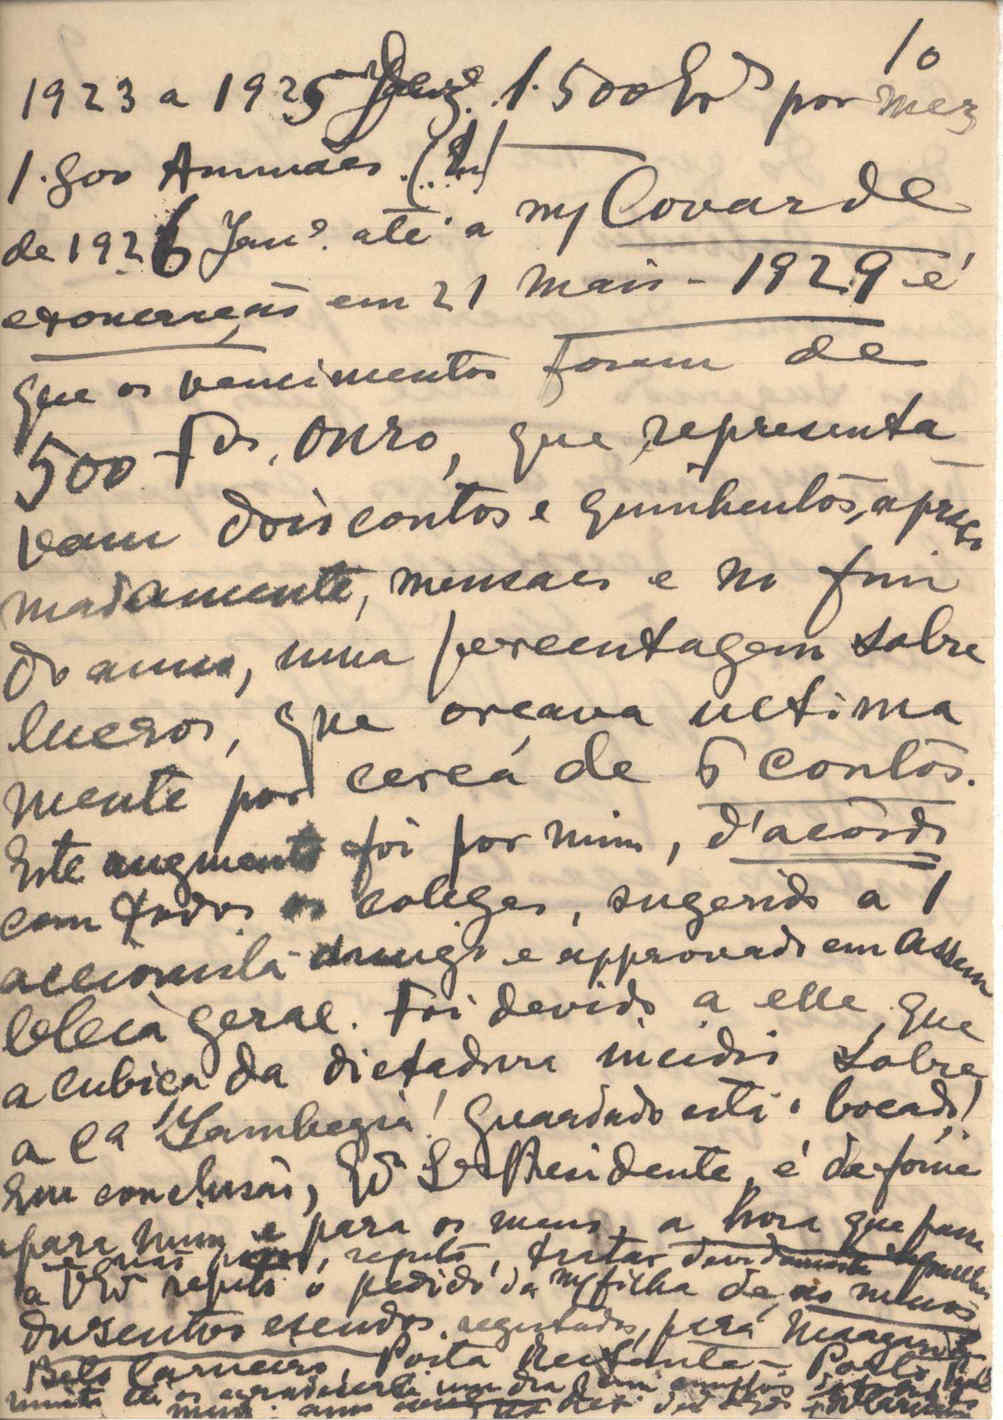 10
1923 a 1925 1.500 Es por mez
1.800 Annuaes.
de 1926 Janº. até a mª Covarde
exoneração em 21 Maio - 1929 é
que os vencimentos foram de
500 Fos, ouro, que representa
vam dois contos e quinhentos, aproxi
madamente, mensaes e no fim
do anno, uma percentagem sobre
lucros, que orçava ultima
mente por cerca de 6 contos.
Este augmento foi por mim, d'acordo
com todos os colegas, sugerido a 1
accionista amigo e approvado em Assem
bleia geral. Foi devido a elle, que
a cubiça da dictadura incidio sobre
a Cª Zambezia! Guardado está o bocado!
Em conclusão, Sr Presidente, é de fome
para mim e para os meus, a hora que passa
e não, repito, tratar devidamente
a V repito o pedido da mª filha de, ao menos
duzentos escudos, registados, para
Belo Carneiro, Posta Restante - Porto,
muito